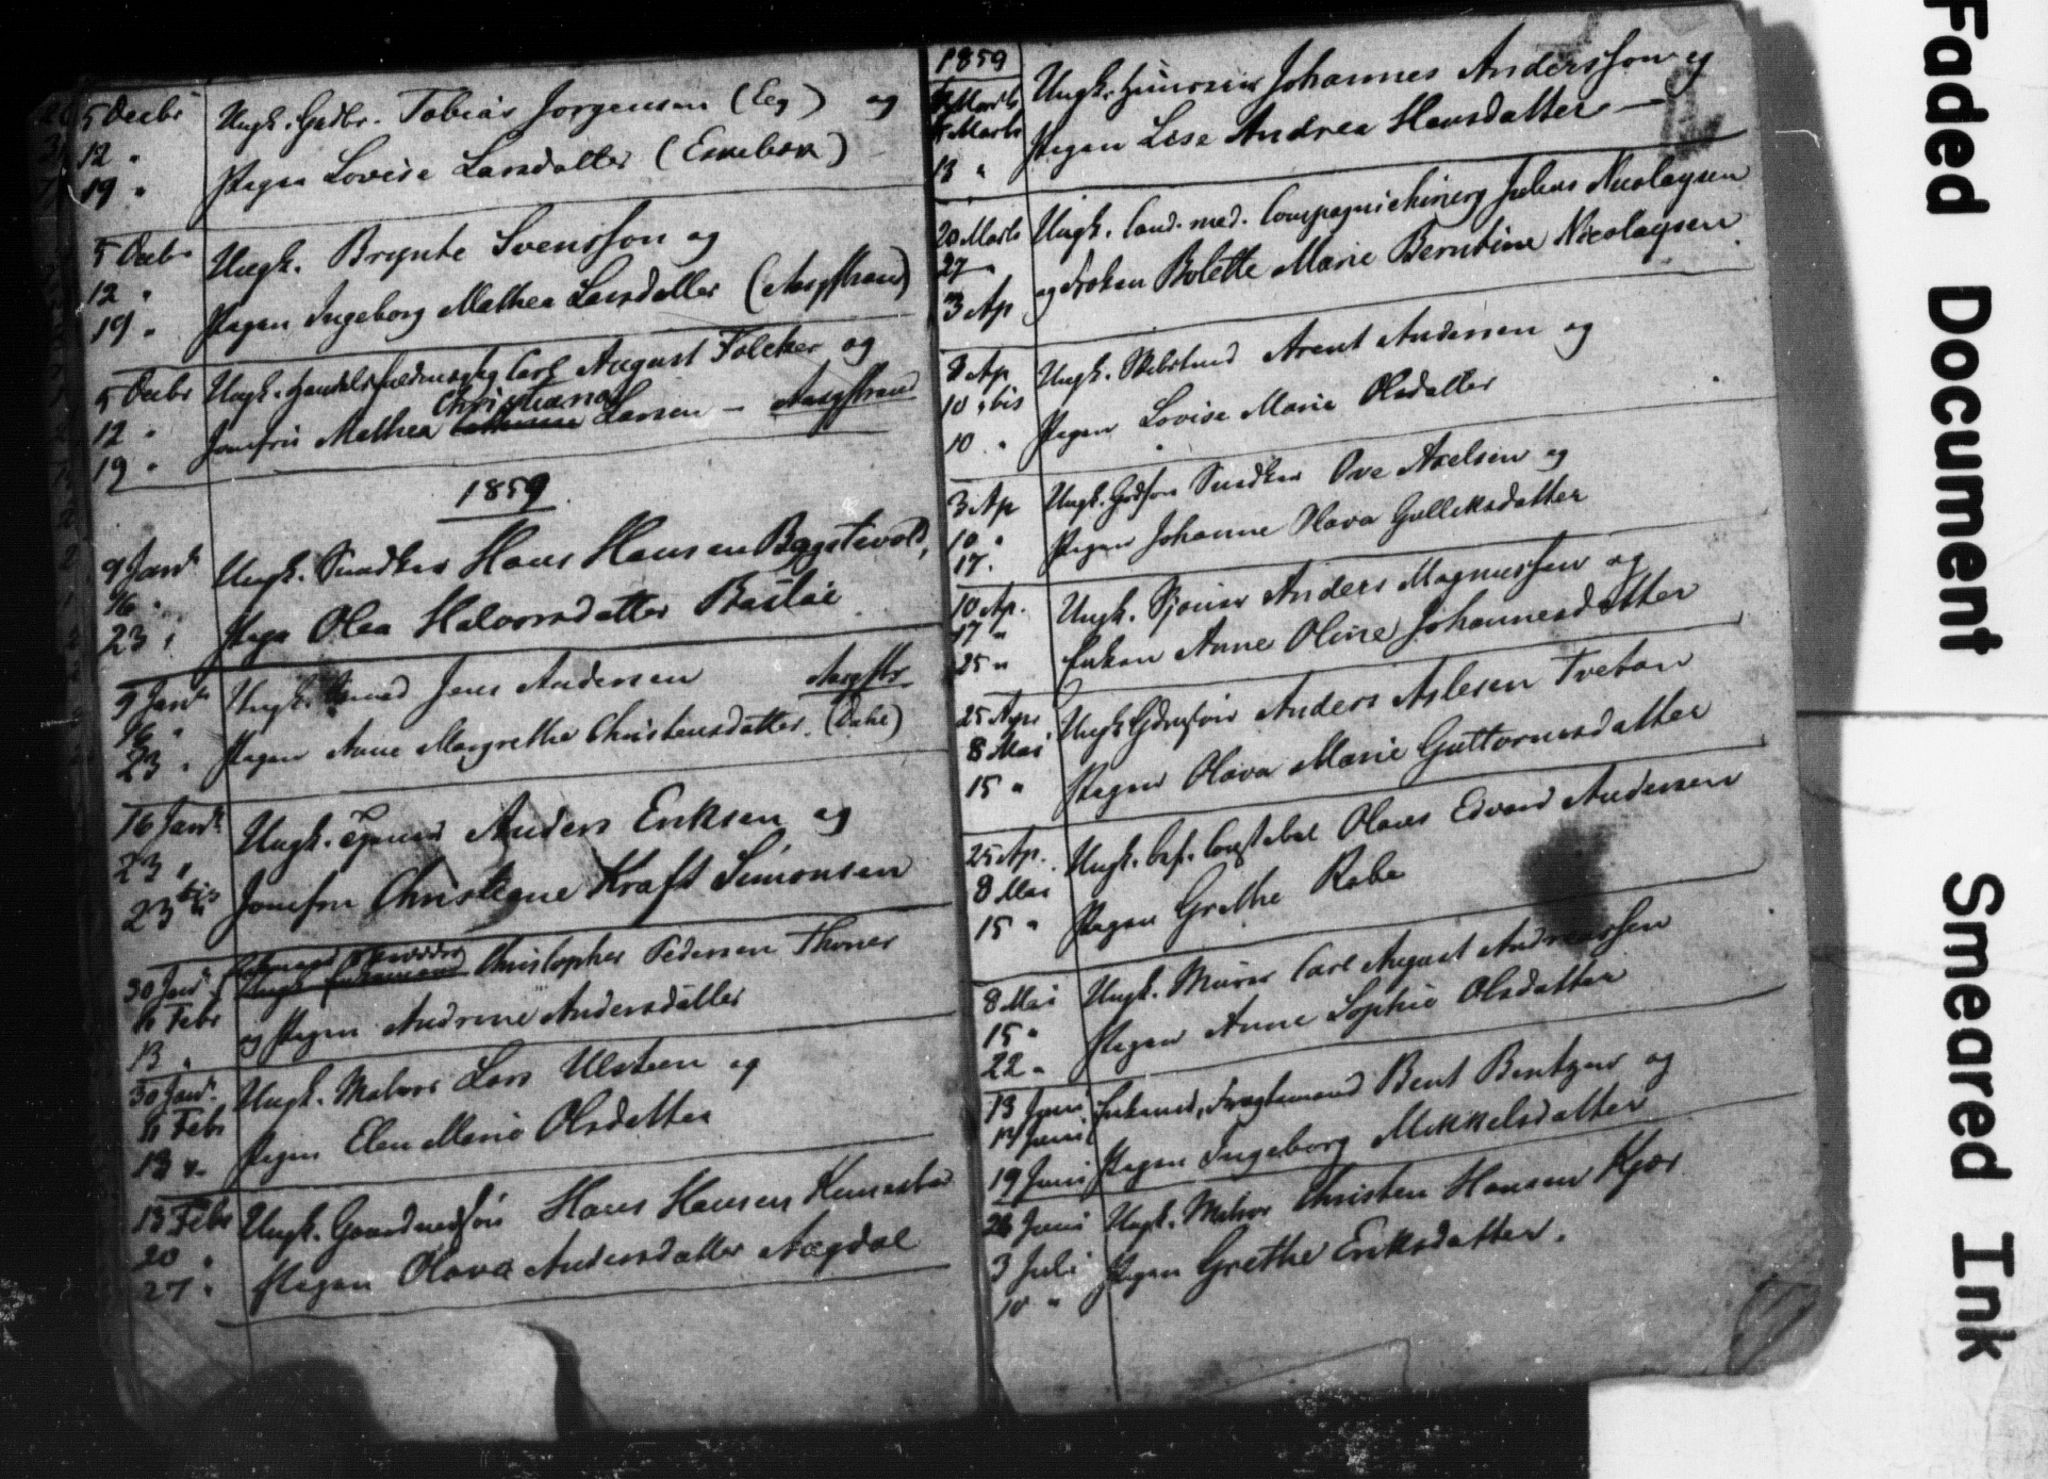 5 Decbr Ungk. Gdbr. Tobias Jørgensen (Eeg) og
12 "
19 " Pigen Lovise Larsdatter (Esnebon)
5 Decbr Ungk. Brynte Svensson og
12 "
19 " Pigen Ingeborg Mathea Larsdatter (Aasgstrand)
5 Decbr Ungk. Handelsfuldmægtig Carl August Folcker og
12 " Christiana
19 " Jomfru Mathea Larsen – Aasgstrand
1859
9 Jan Ungk. Snedker Hans Hansen Bogstevold,
16 "
23 " Pige Olea Halvorsdatter Bastøe
9 Jan Ungk. Jens Andersen Aasgstr
16 "
23 " Pigen Anne Margrethe Christensdatter (Dahl)
16 Jan Ungk. Anders Eriksen og
23 "
23 bis Jomfru Christiane Kraft Simonsen
30 Jan Christopher Pedersen Thorier
6 Febr og Pigen Andrine Andersdatter
13 "
30 Jan Ungk. Matros Lars Ulsteen og
6 Febr
13 " Pigen Elen Marie Olsdatter
13 Febr Ungk. Gaardmdsøn Hans Hansen
20 "
27 " Pigen Olava Andersdatter Aagdal
1859
Ungk. Johannes Andersson og
6 Marts
13 " Pigen Lise Andrea Hansdatter –
20 Marts Ungk. Cand. med. Compagnichirurg Julius Nicolaysen
27 "
3 Ap og Frøken Bolette Marie Berntine Nicolaysen
3 Ap Ungk. Skibstmd Arent Andersen og
10 " bis
10 " Pigen Lovise Marie Olsdatter
3 Ap Ungk. Snedker Ove Axelsen og
10 "
17 " Pigen Johanne Olava Gulleksdatter
10 Ap. Ungk. Anders Magnussen og
17 "
25 " Enken Anne Oline Johannesdatter
25 Apr Ungk Anders Aslesen Tvetan
8 Mai
15 " Pigen Olava Marie Guttormsdatter
25 Ap. Ungk. Constabel Olaves Edvard Andersen
8 Mai
15 " Pigen Grethe Rabe
8 Mai Ungk. Murer Carl August Andreassen
15 "
22 " Pigen Anne Sophie Olsdatter
13 Juni Enkemd, Fragtemand Bent Bentzen og
13 Juni
19 Juni Pigen Ingeborg Mikkelsdatter
26 Juni Ungk. Matros Christen Hansen Kjær
3 Juli
10 " Pigen Grethe Eriksdatter.
Faded Document
Smeared Ink